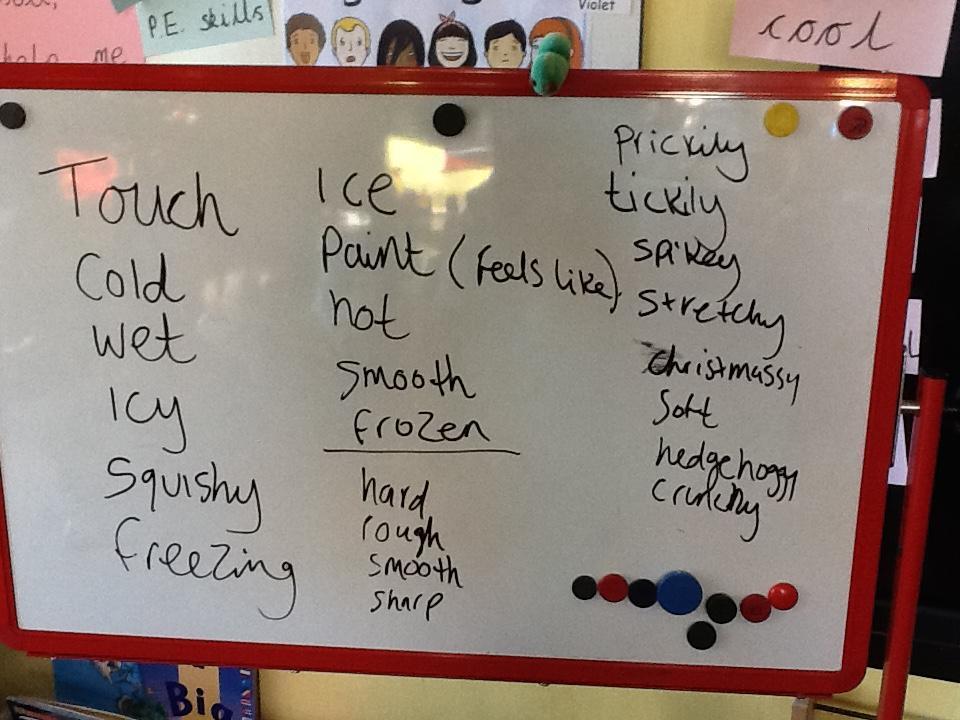 P.E. skills
me
Violet
cool
Touch
Cold
Wet
Icy
Squishy
freezing
Ice
Paint (feels like)
hot
smooth
frozen
hard
rough
smooth
sharp
Prickily
tickily
spikey
stretchy
christmassy
soft
hedgehoggy
crunchy
Big